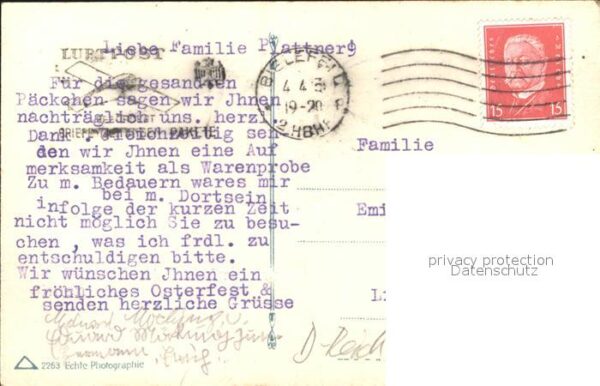 Liebe Familie Plattner!
LUFTPOST
Für die gesandten
Päckchen sagen wir Jhnen
nachträglich uns. herzl.
Dank. Gleichzeitig sen
den wir Jhnen eine Auf
merksamkeit als Warenprobe
Zu m. Bedauern wares mir
bei m. Dortsein
infolge der kurzen Zeit
nicht möglich Sie zu besu-
chen , was ich frdl. zu
entschuldigen bitte.
Wir wünschen Jhnen ein
fröhliches Osterfest &
senden herzliche Grüsse
2263 Echte Photographie
BIELEFELD
4.4
19-20
2 HBHF
15 15
Familie
Emi
privacy protection
Datenschutz
Li
D-Reich